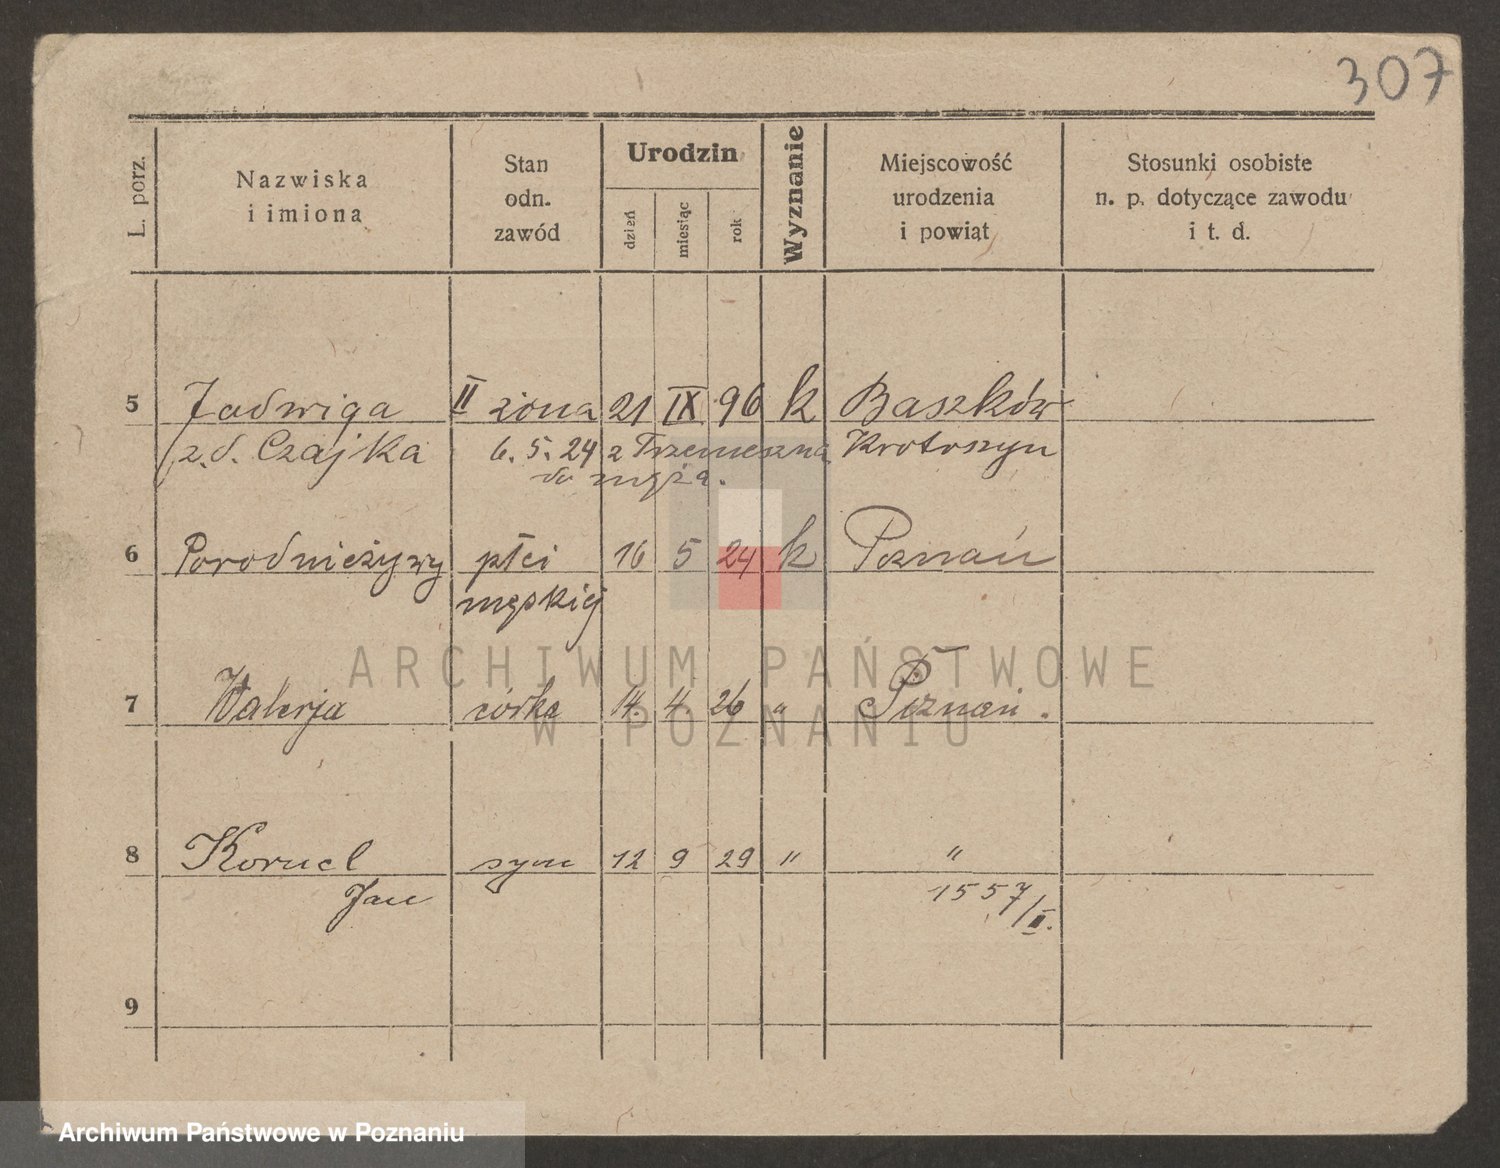 307
L. porz.
Nazwiska
i imiona
Stan
odn.
zawód
Urodzin
dzień
miesiąc
rok
Wyznanie
Miejscowość
urodzenia
i powiąt
Stosunki osobiste
n. p. dotyczące zawodu
i t. d.
5 Jadwiga II żona 21 IX 96 k Baszków
z. d. Czajka 6. 5. 24 z Trzemeszna Krotoszyn
do męża.
6 Porodnieżywy płci 16 5 24 k Poznań
męskiej
ARCHIWUM PAŃSTWOWE
7 Walerja córka 14. 4. 26 " Poznań.
W POZNANIU
8 Kornel syn 12 9 29 " "
Jan 1557/II.
9
Archiwum Państwowe w Poznaniu